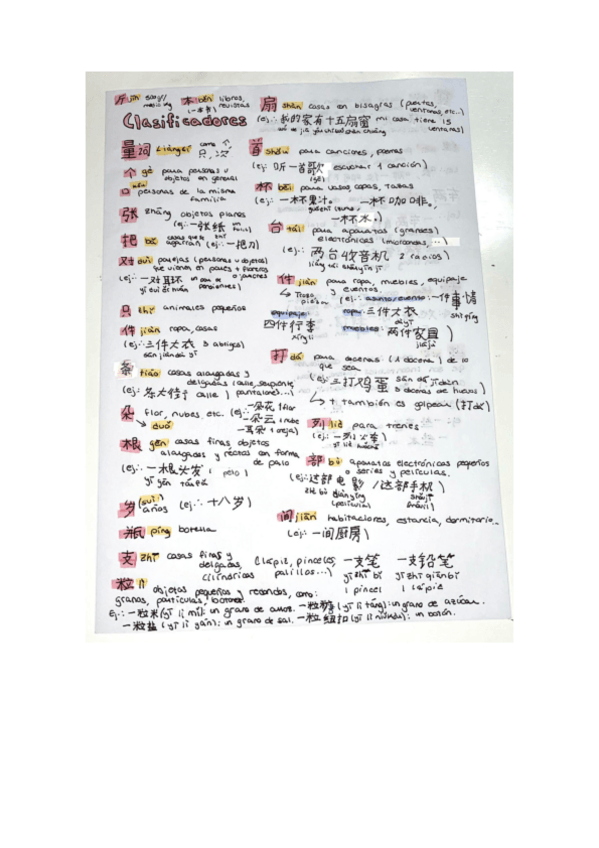 斤 jīn 500g// 本 běn libros, revistas
扇 shàn cosas en bisagras (puertas, ventanas, etc...)
Clasificadores
(ej: 我的家有十五扇窗 mi casa tiene 15 ventanas)
量词 Liàngcí como 个, 只, 次
首 shǒu para canciones, poemas
(ej: 听一首歌 escuchar 1 canción)
个 gè para personas u objetos en general
口 personas de la misma familia
杯 bēi para vasos, copas, tazas
(ej: 一杯果汁。 一杯咖啡。
一杯水。)
张 zhāng objetos planos
(ej: 一张纸
把 bǎ cosas que se agarran (ej: 一把刀)
台 tái para aparatos (grandes) electrónicos (microondas, ...)
(ej: 两台收音机 2 radios)
liǎng tái shōuyīnjī
对 duì parejas (personas u objetos) que vienen en pares
(ej: 一对耳环 un par de pendientes)
yí duì ěr huán
件 jiàn para ropa, muebles, equipaje y eventos.
(ej: asunto/evento: 一件事情
shì qíng
equipaje: ropa: 三件大衣
dàyī
四件行李 muebles: 两件家具)
xíngli jiājù
只 zhī animales pequeños
件 jiàn ropa, cosas
(ej: 三件大衣 3 abrigos)
sān jiàn dà yī
打 dá para docenas (1 docena) de lo que sea
(ej: 三打鸡蛋 sān dá jīdàn
3 docenas de huevos)
también es golpear (打 dǎ)
条 tiáo cosas alargadas y delgadas (calle, serpiente, pantalones...)
(ej: calle)
朵 flor, nubes, etc. (ej: 一朵花 1 flor
duǒ 一朵云 1 nube
列 liè para trenes
(ej: 一列火车)
yī liè huǒchē
根 gēn cosas finas, objetos alargados y rectos en forma de palo
(ej: 一根头发 (pelo)
yī gēn tóufa
部 bù aparatos electrónicos pequeños o series y películas.
(ej: 这部电影 / 这部手机)
zhè bù diànyǐng shǒujī
(película) (móvil)
岁 (suì) años (ej: 十八岁)
间 jiān habitaciones, estancia, dormitorio...
(ej: 一间厨房)
瓶 píng botella
支 zhī cosas finas y delgadas, cilíndricas (lápiz, pinceles, palillos...) 一支笔 一支铅笔
yī zhī bǐ yī zhī qiānbǐ
1 pincel 1 lápiz
粒 lì objetos pequeños y redondos, como:
granos, partículas, botones.
Ej: 一粒米 (yī lì mǐ): un grano de arroz. (yī lì táng): un grano de azúcar.
一粒盐 (yī lì yán): un grano de sal. 一粒纽扣 (yī lì niǔkòu): un botón.